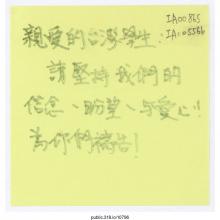 IA00865
IA:05556
親愛的台灣學生：
請堅持我們的
信念、盼望、与愛心!!
為你們禱告!
public.318.io/10796